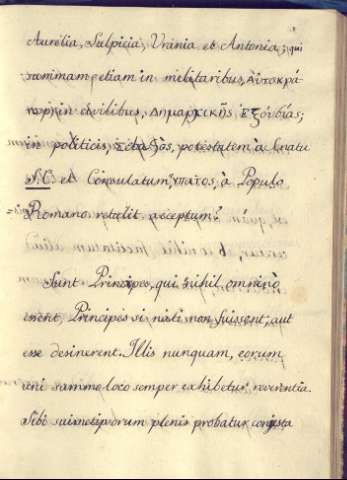 Aurelia, Sulpicia, Urania et Antonia; qui
summam etiam in militaribus, Αυτοκρά-
τορος in civilibus, Δημαρχικῆς Εξουσίας;
in politicis, Σεβαςος, potestatem à Senatu
S.C. et Consulatum, ὕπατος, à Populo
Romano retulit acceptum?
Sunt Principes, qui nihil omninò
essent, Principes si nati non fuissent, aut
esse desinerent. Illis nunquam, eorum
uni summo loco semper exhibetur reverentia.
Sibi suimetipsorum plenis probatur congesta